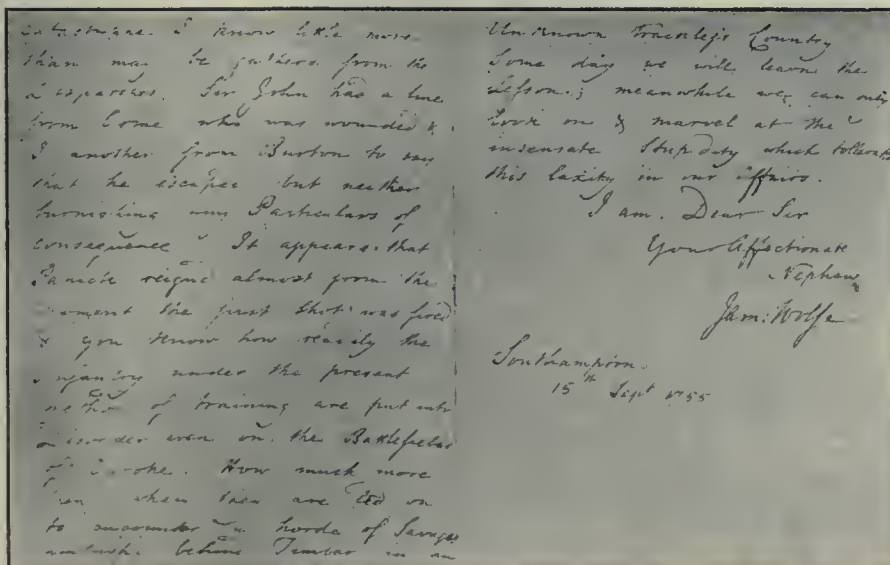 I know little more
than may be gathered from the
Sir John has a line
from Come who was wounded &
I another from Burton to say
that he escaped but neither
furnishing any Particulars of
consequence It appears that
Panick reigned almost from the
moment the first shot was fired
& you know how readily the
Infantry under the present
method of training are put into
Disorder even on the Battlefields
of Europe. How much more
then when they are led on
to encounter a horde of Savages
ambush'd behind Timber in an
Unknown Trackless Country
Some day we will learn the
Lesson; meanwhile we can only
look on & marvel at the
insensate Stupidity which tollerates
this laxity in our affairs.
I am. Dear Sir
Your Affectionate
Nephew
Jam: Wolfe
Southampton.
15th Sept 1755